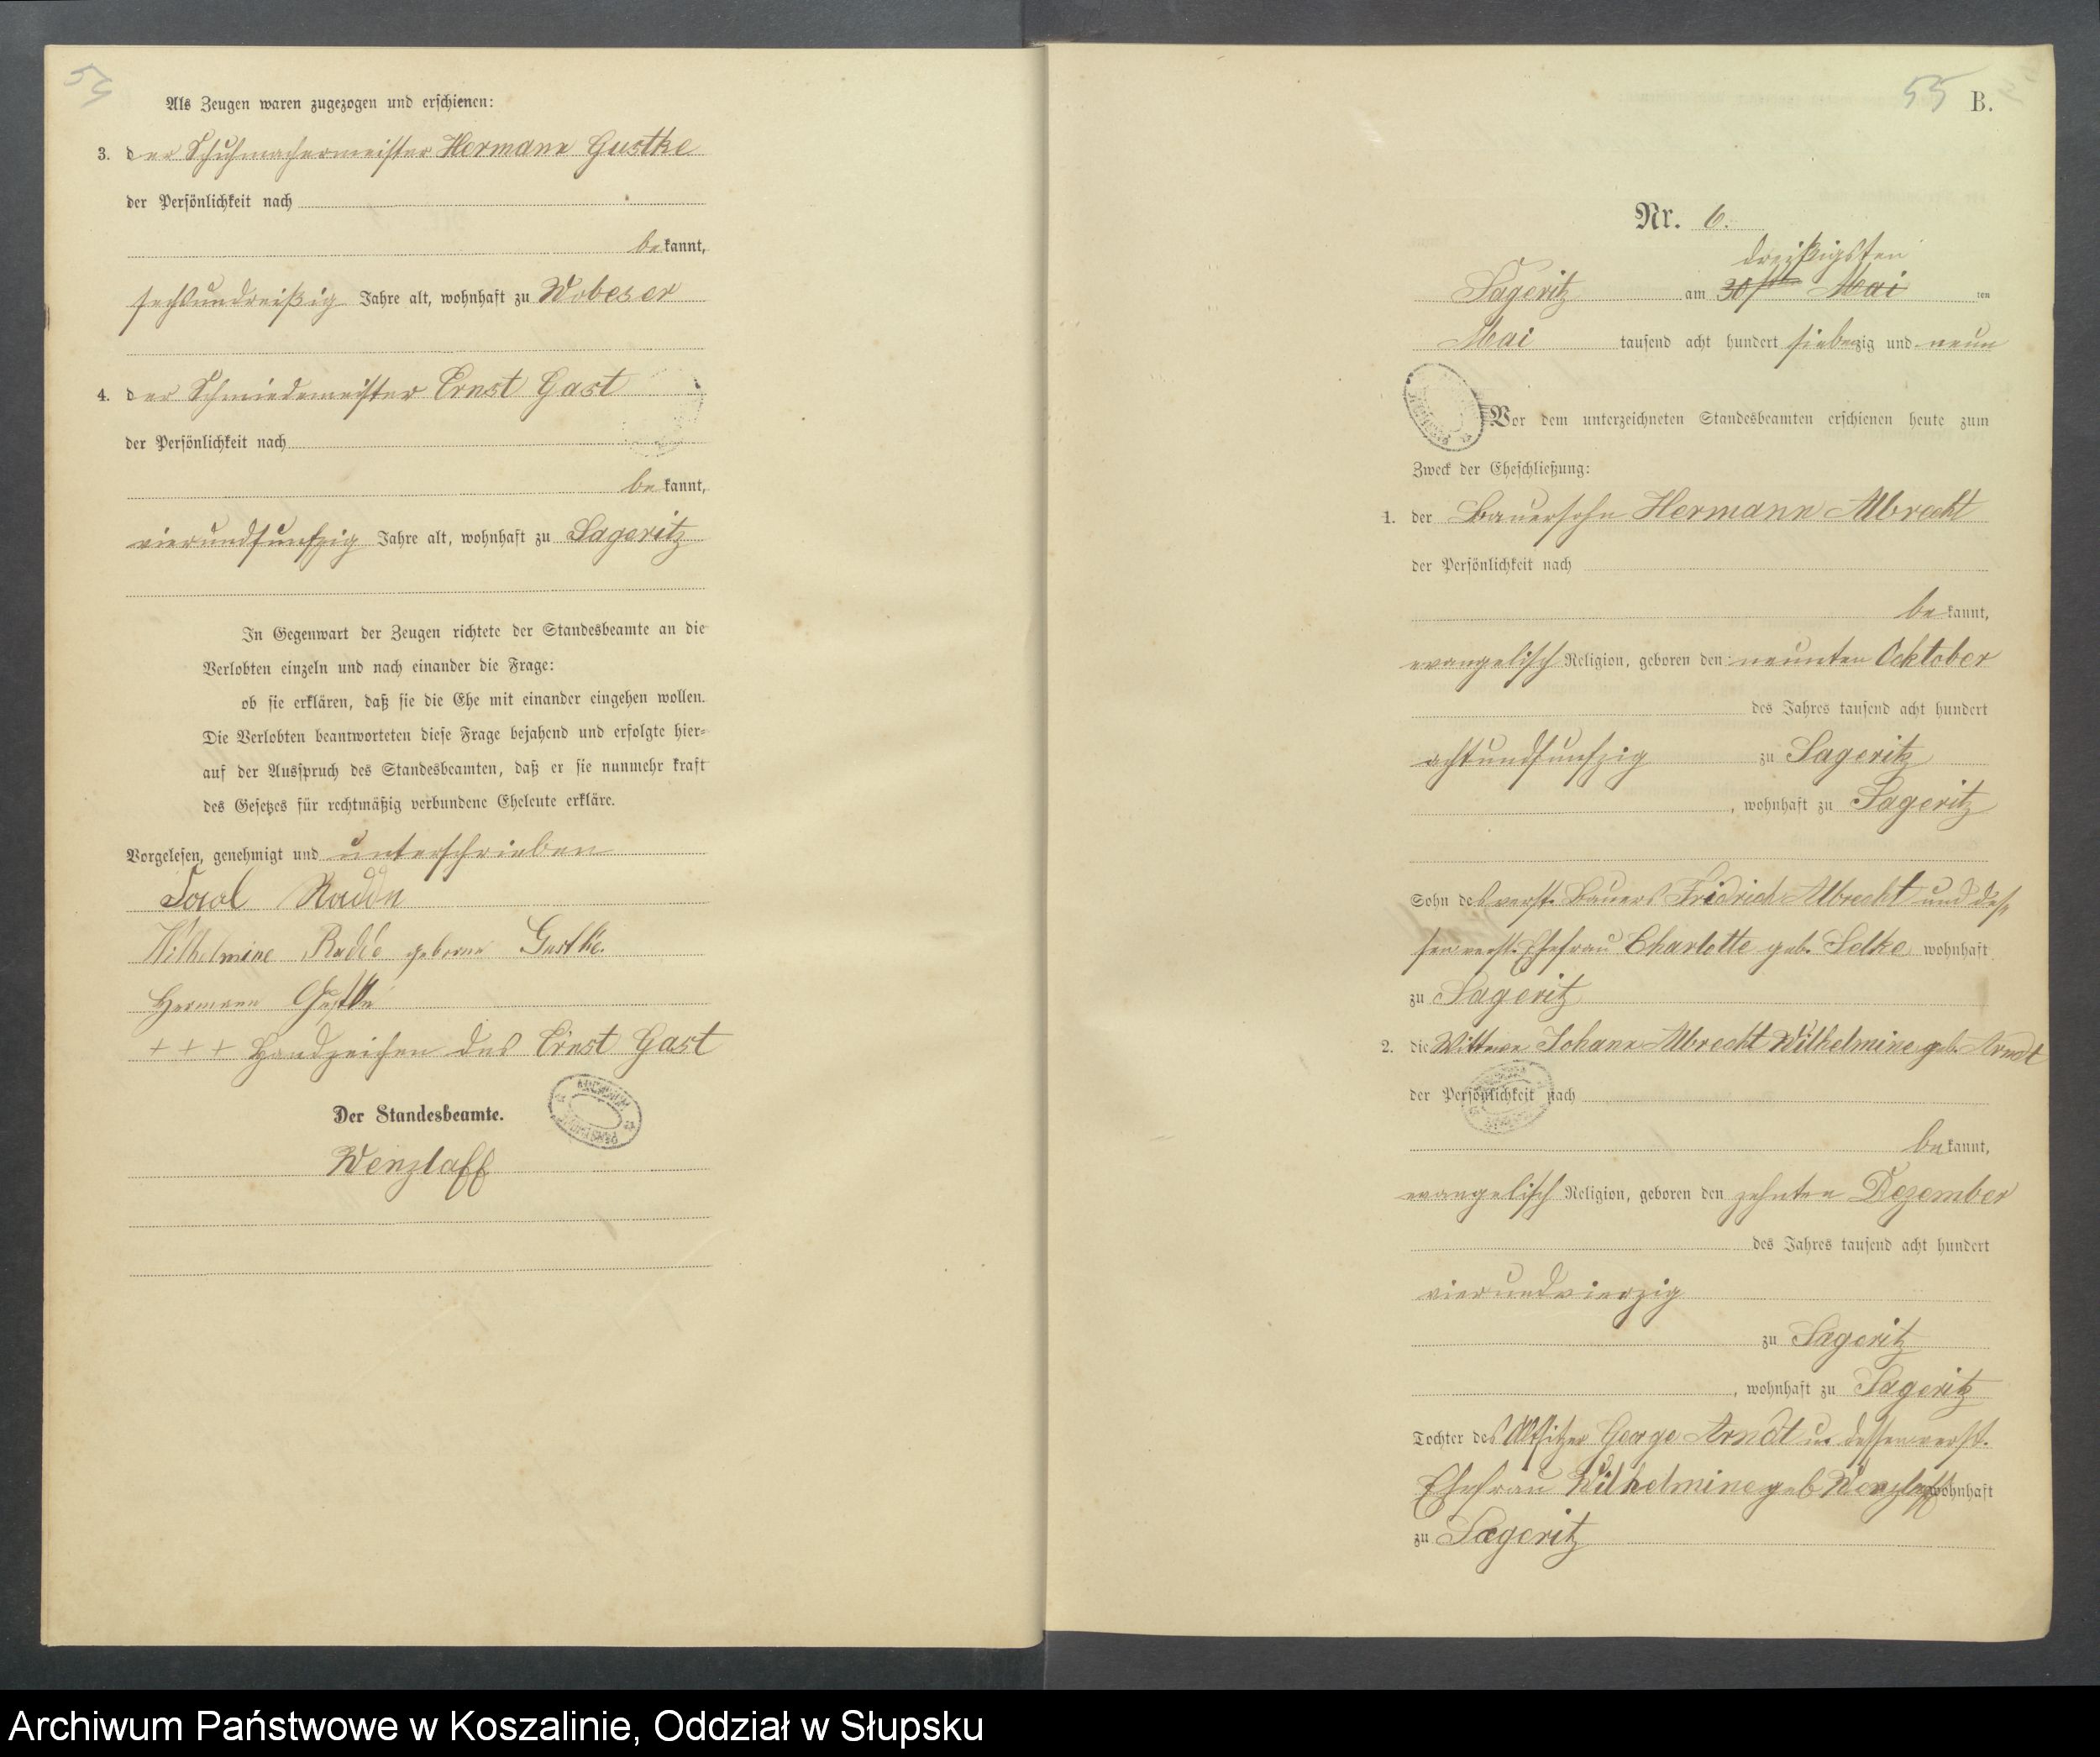 54
Als Zeugen waren zugezogen und erschienen:
3. der Schuhmachermeister Hermann Gustke
der Persönlichkeit nach
bekannt,
sechsundreißig Jahre alt, wohnhaft zu Wobeser
4. der Schmiedemeister Ernst Gast
der Persönlichkeit nach
bekannt,
vierundfunfzig Jahre alt, wohnhaft zu Sageritz
In Gegenwart der Zeugen richtete der Standesbeamte an die
Verlobten einzeln und nach einander die Frage:
ob sie erklären, daß sie die Ehe mit einander eingehen wollen.
Die Verlobten beantworteten diese Frage bejahend und erfolgte hier-
auf der Ausspruch des Standesbeamten, daß er sie nunmehr kraft
des Gesetzes für rechtmäßig verbundene Eheleute erkläre.
Vorgelesen, genehmigt und unterschrieben
Wilhelmine Radde geborne Gustke.
Hermann Gustke
+ + + Handzeichen des Ernst Gast
Der Standesbeamte.
Wenzlaff
55 B.
Nr. 6.
dreißigsten
Sageritz am 30sten Mai ten
Mai tausend acht hundert siebenzig und neun
Vor dem unterzeichneten Standesbeamten erschienen heute zum
Zweck der Eheschließung:
1. der Bauersohn Hermann Albrecht
der Persönlichkeit nach
bekannt,
evangelisch Religion, geboren den neunten Ocktober
des Jahres tausend acht hundert
achtundfunfzig zu Sageritz
, wohnhaft zu Sageritz
Sohn des verst. Bauers Fridrich Albrecht und des
sen verst. Ehefrau Charlotte geb. Selke wohnhaft
zu Sageritz
2. die Wittwe Johann Albrecht Wilhelmine geb. Arndt
der Persönlichkeit nach
bekannt,
evangelisch Religion, geboren den zehnten Dezember
des Jahres tausend acht hundert
vierundvierzig
zu Sageritz
, wohnhaft zu Sageritz
Tochter des Altsitzer George Arndt u. dessen verst.
Ehefrau Wilhelmine geb Wenzlaff wohnhaft
zu Sageritz
Archiwum Państwowe w Koszalinie, Oddział w Słupsku